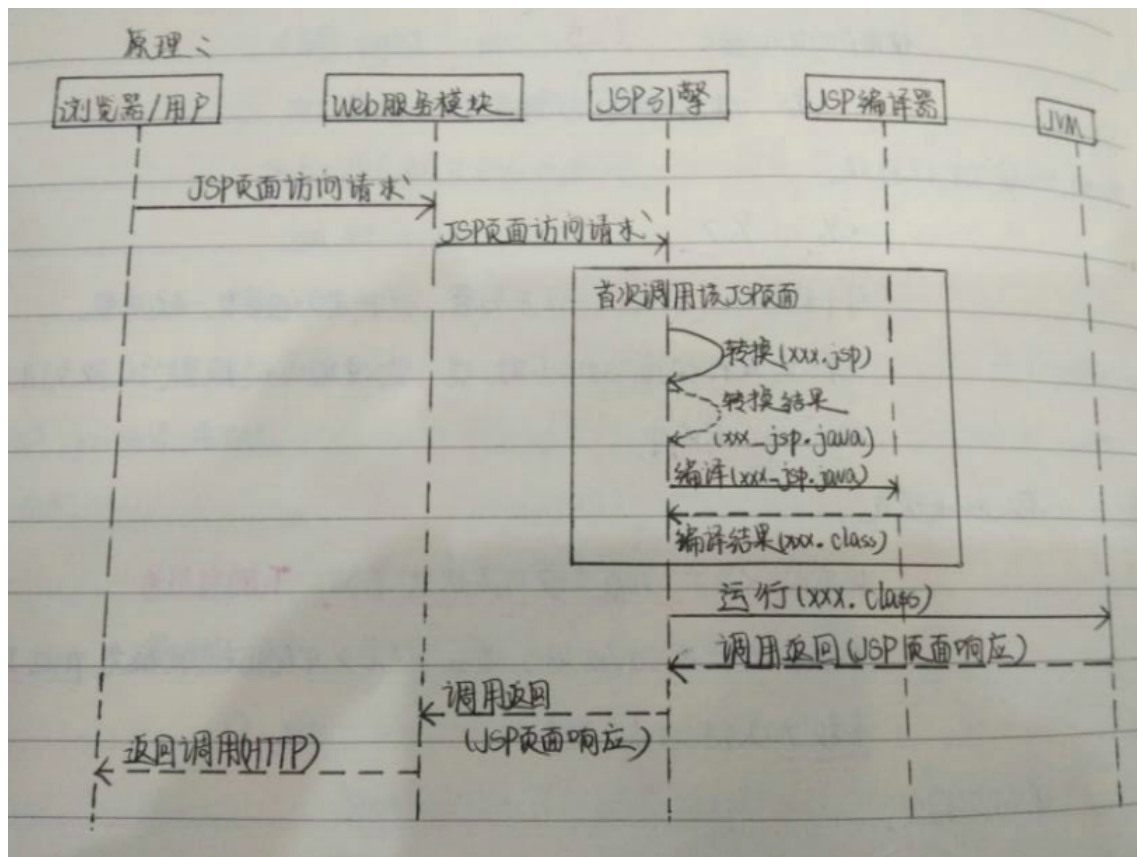 原理：
浏览器/用户
Web服务模块
JSP引擎
JSP编译器
JVM
JSP页面访问请求
JSP页面访问请求
首次调用该JSP页面
转换(xxx.jsp)
转换结果
(xxx_jsp.java)
编译(xxx_jsp.java)
编译结果(xxx.class)
运行(xxx.class)
调用返回(JSP页面响应)
调用返回
(JSP页面响应)
返回调用(HTTP)